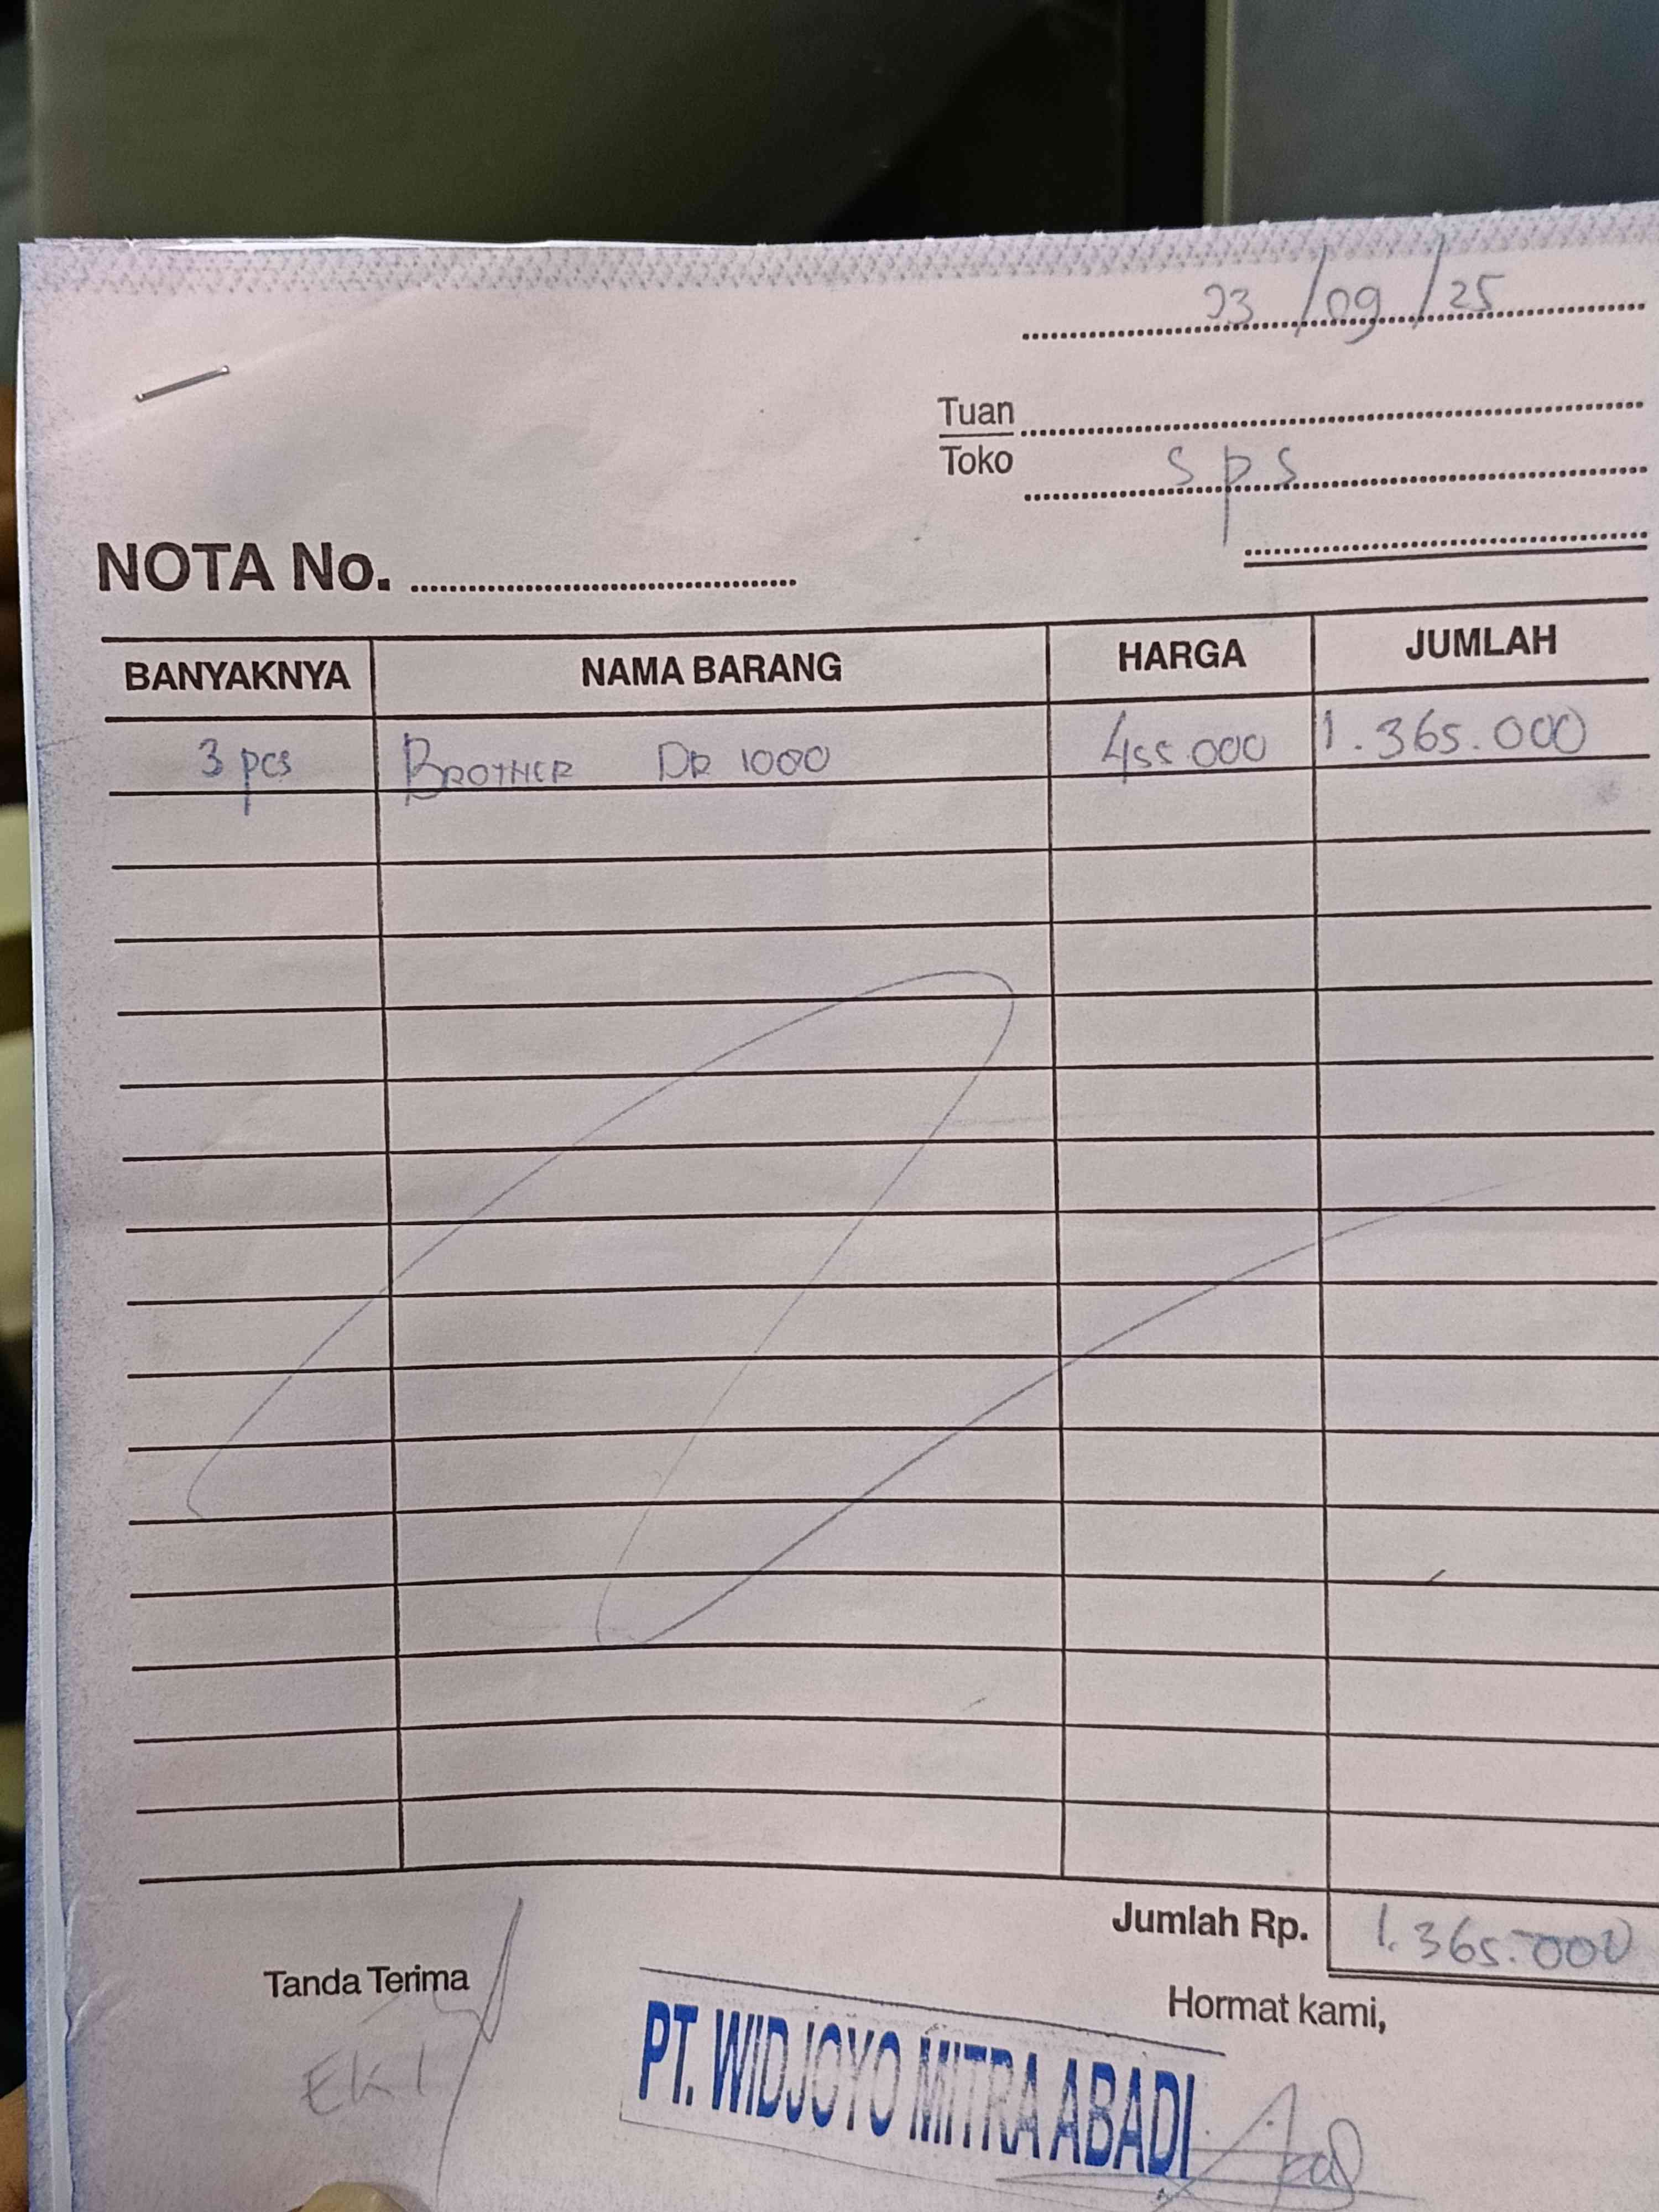 03/09/25
Tuan
Toko
sps
NOTA No.
BANYAKNYA NAMA BARANG HARGA JUMLAH
3 pcs BROTHER DR 1000 455.000 1.365.000
Jumlah Rp. 1.365.000
Tanda Terima
Hormat kami,
EKI
PT. WIDJOYO MITRA ABADI